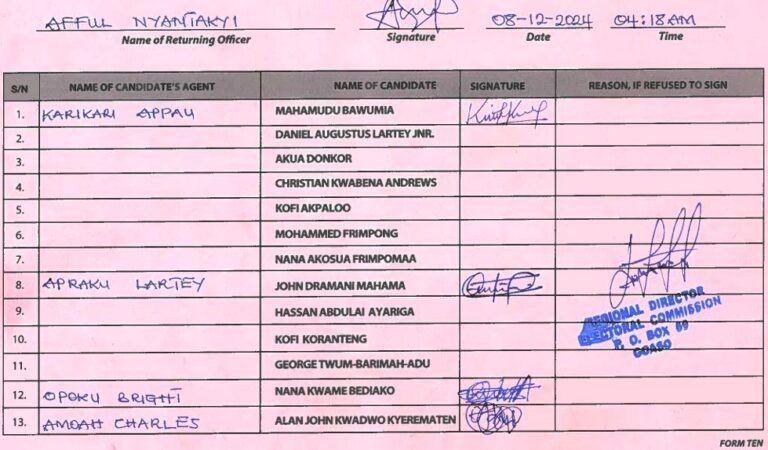 AFFUL NYANTAKYI 08-12-2024 04:18AM
Name of Returning Officer Signature Date Time
S/N NAME OF CANDIDATE'S AGENT NAME OF CANDIDATE SIGNATURE REASON, IF REFUSED TO SIGN
1. KARIKARI APPAU MAHAMUDU BAWUMIA
2. DANIEL AUGUSTUS LARTEY JNR.
3. AKUA DONKOR
4. CHRISTIAN KWABENA ANDREWS
5. KOFI AKPALOO
6. MOHAMMED FRIMPONG
7. NANA AKOSUA FRIMPOMAA
8. APRAKU LARTEY JOHN DRAMANI MAHAMA
9. HASSAN ABDULAI AYARIGA
10. KOFI KORANTENG
11. GEORGE TWUM-BARIMAH-ADU
12. OPOKU BRIGHT NANA KWAME BEDIAKO
13. AMOAH CHARLES ALAN JOHN KWADWO KYEREMATEN
REGIONAL DIRECTOR
ELECTORAL COMMISSION
P. O. BOX 69
GOASO
FORM TEN